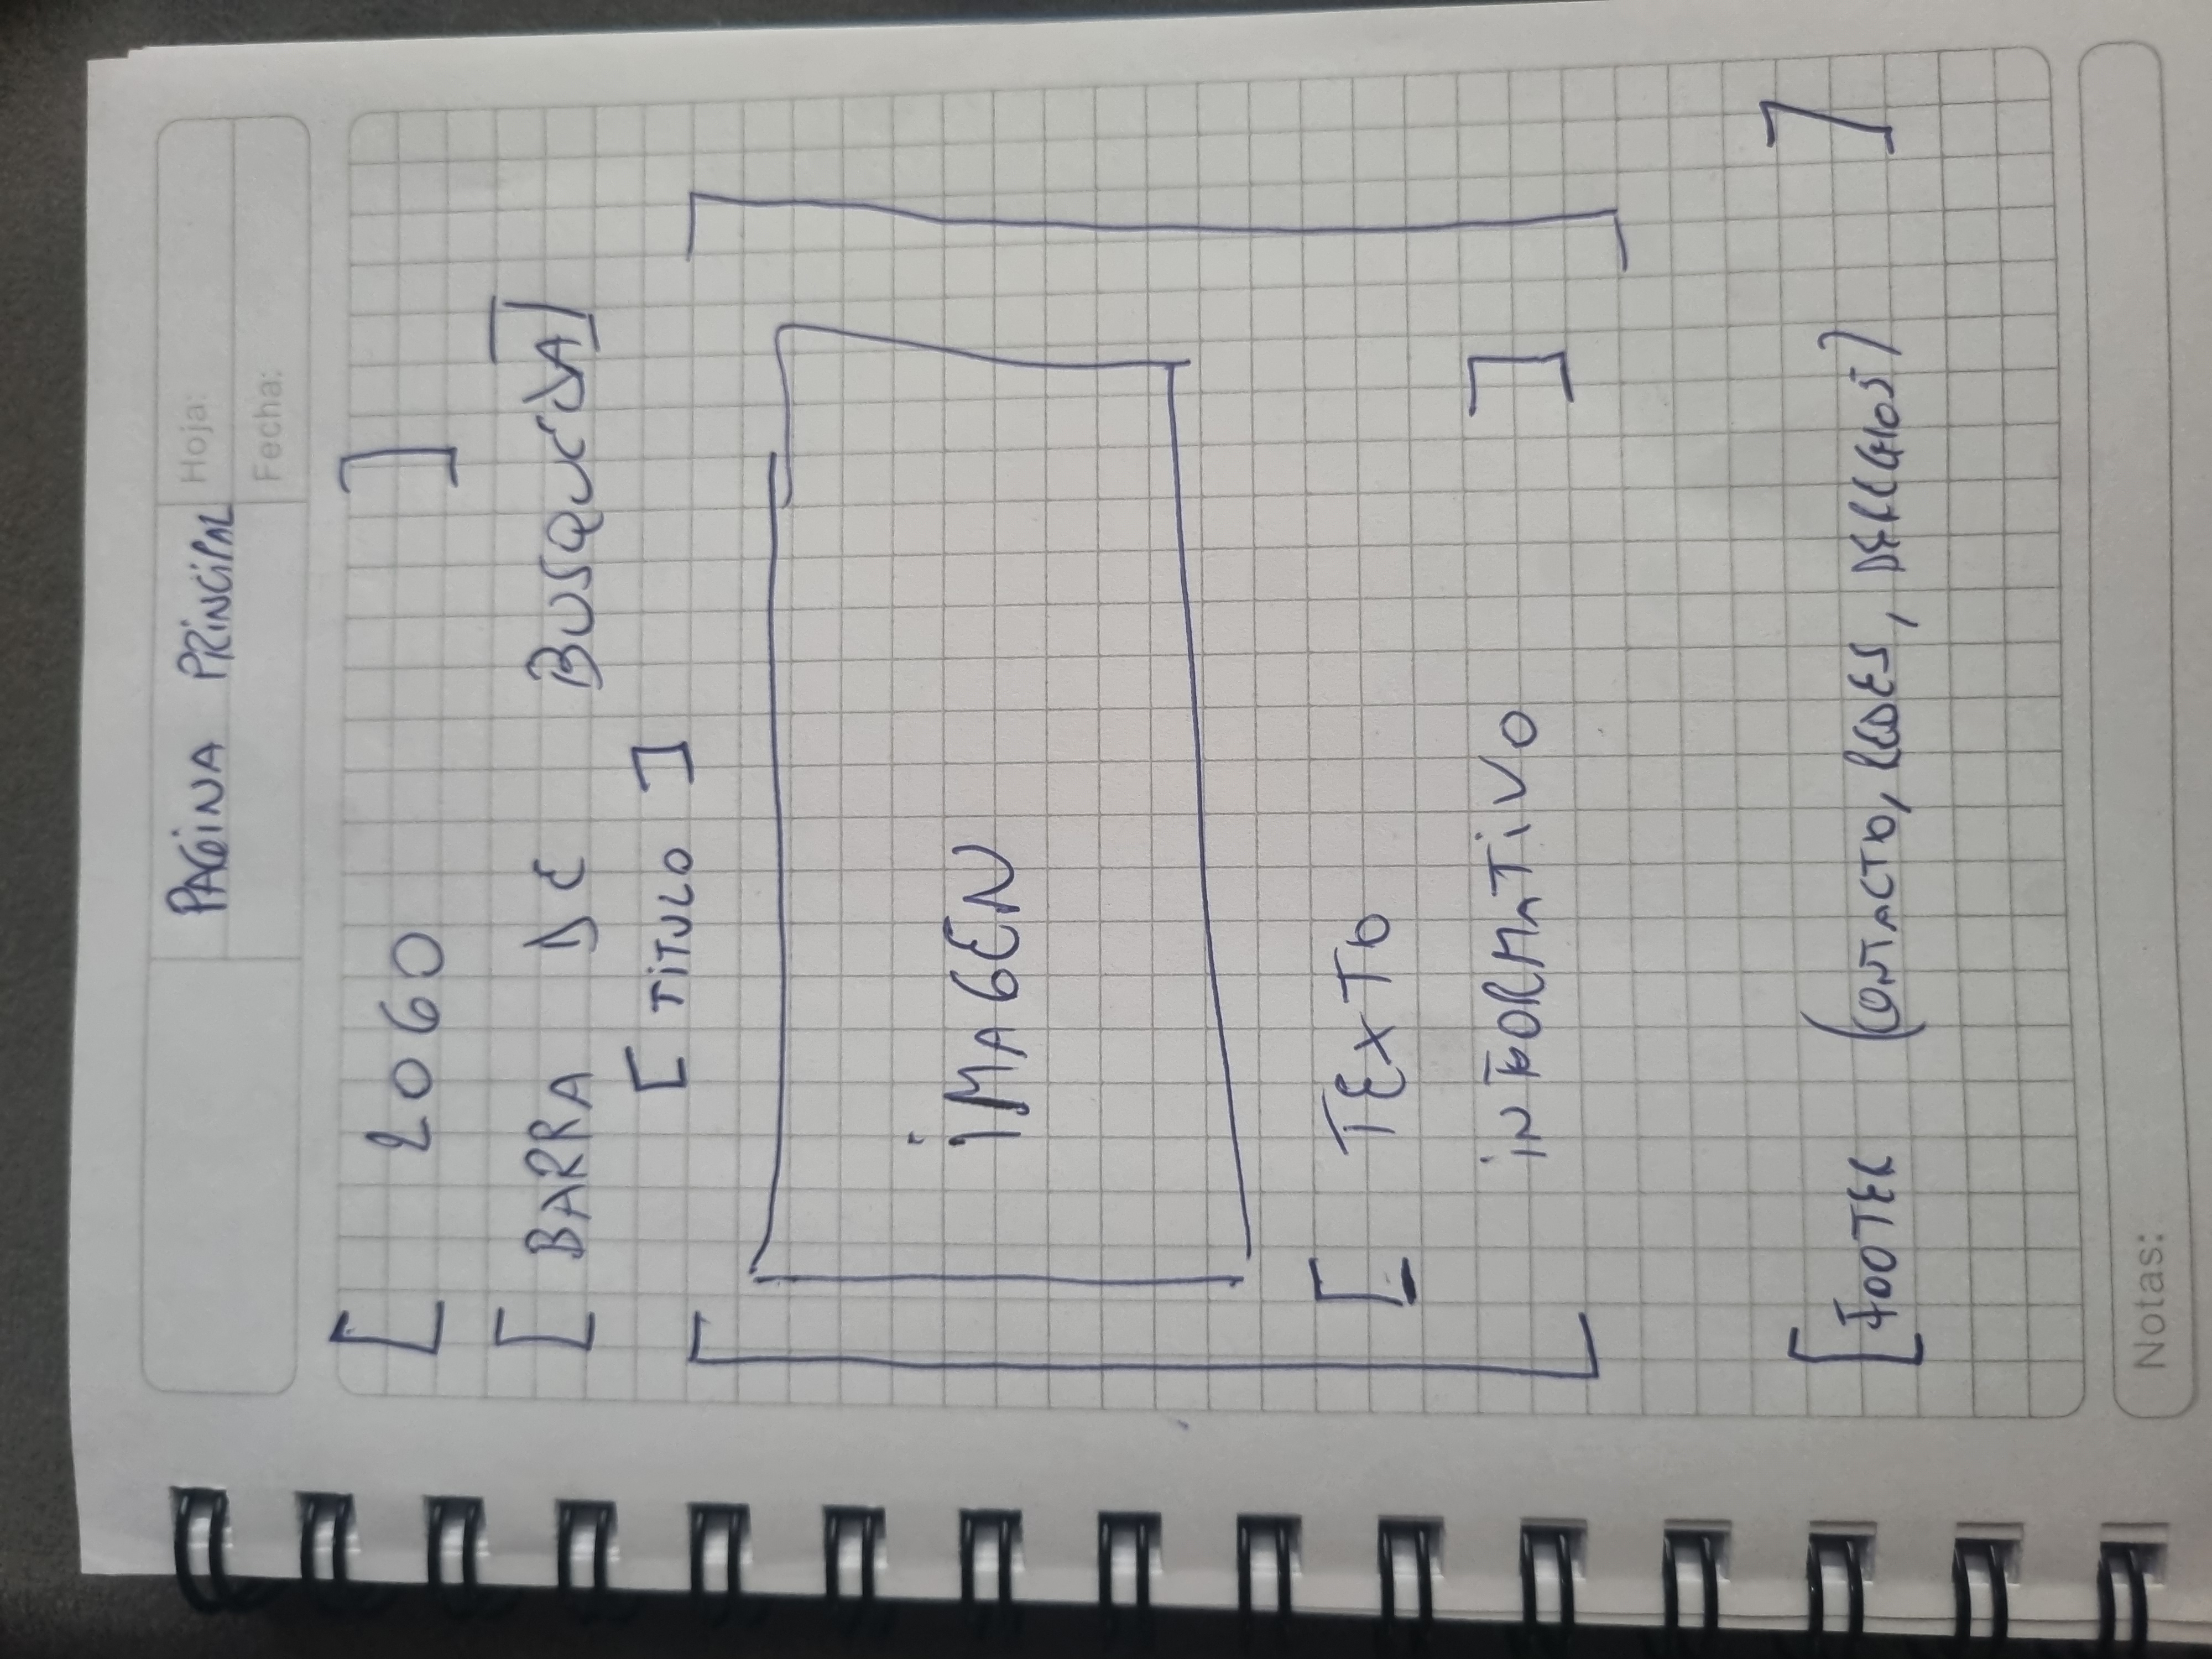 PAGINA PRINCIPAL
Hoja:
Fecha:
[ LOGO ]
[ BARRA DE BUSQUEDA]
[ TITULO ]
IMAGEN
[ TEXTO
INFORMATIVO ]
[FOOTER (CONTACTO, REDES, DERECHOS) ]
Notas: